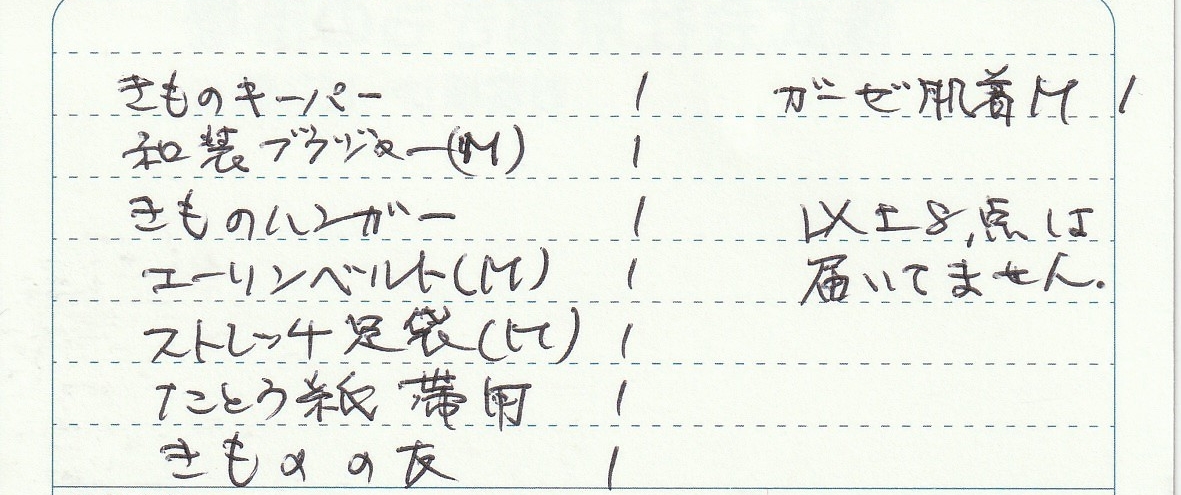 きものキーパー 1
和装ブラジャー(M) 1
きものハンガー 1
エーリンベルト(M) 1
ストレッチ足袋(M) 1
たとう紙 帯用 1
きものの友 1
ガーゼ肌着M 1
以上8点は
届いてません.